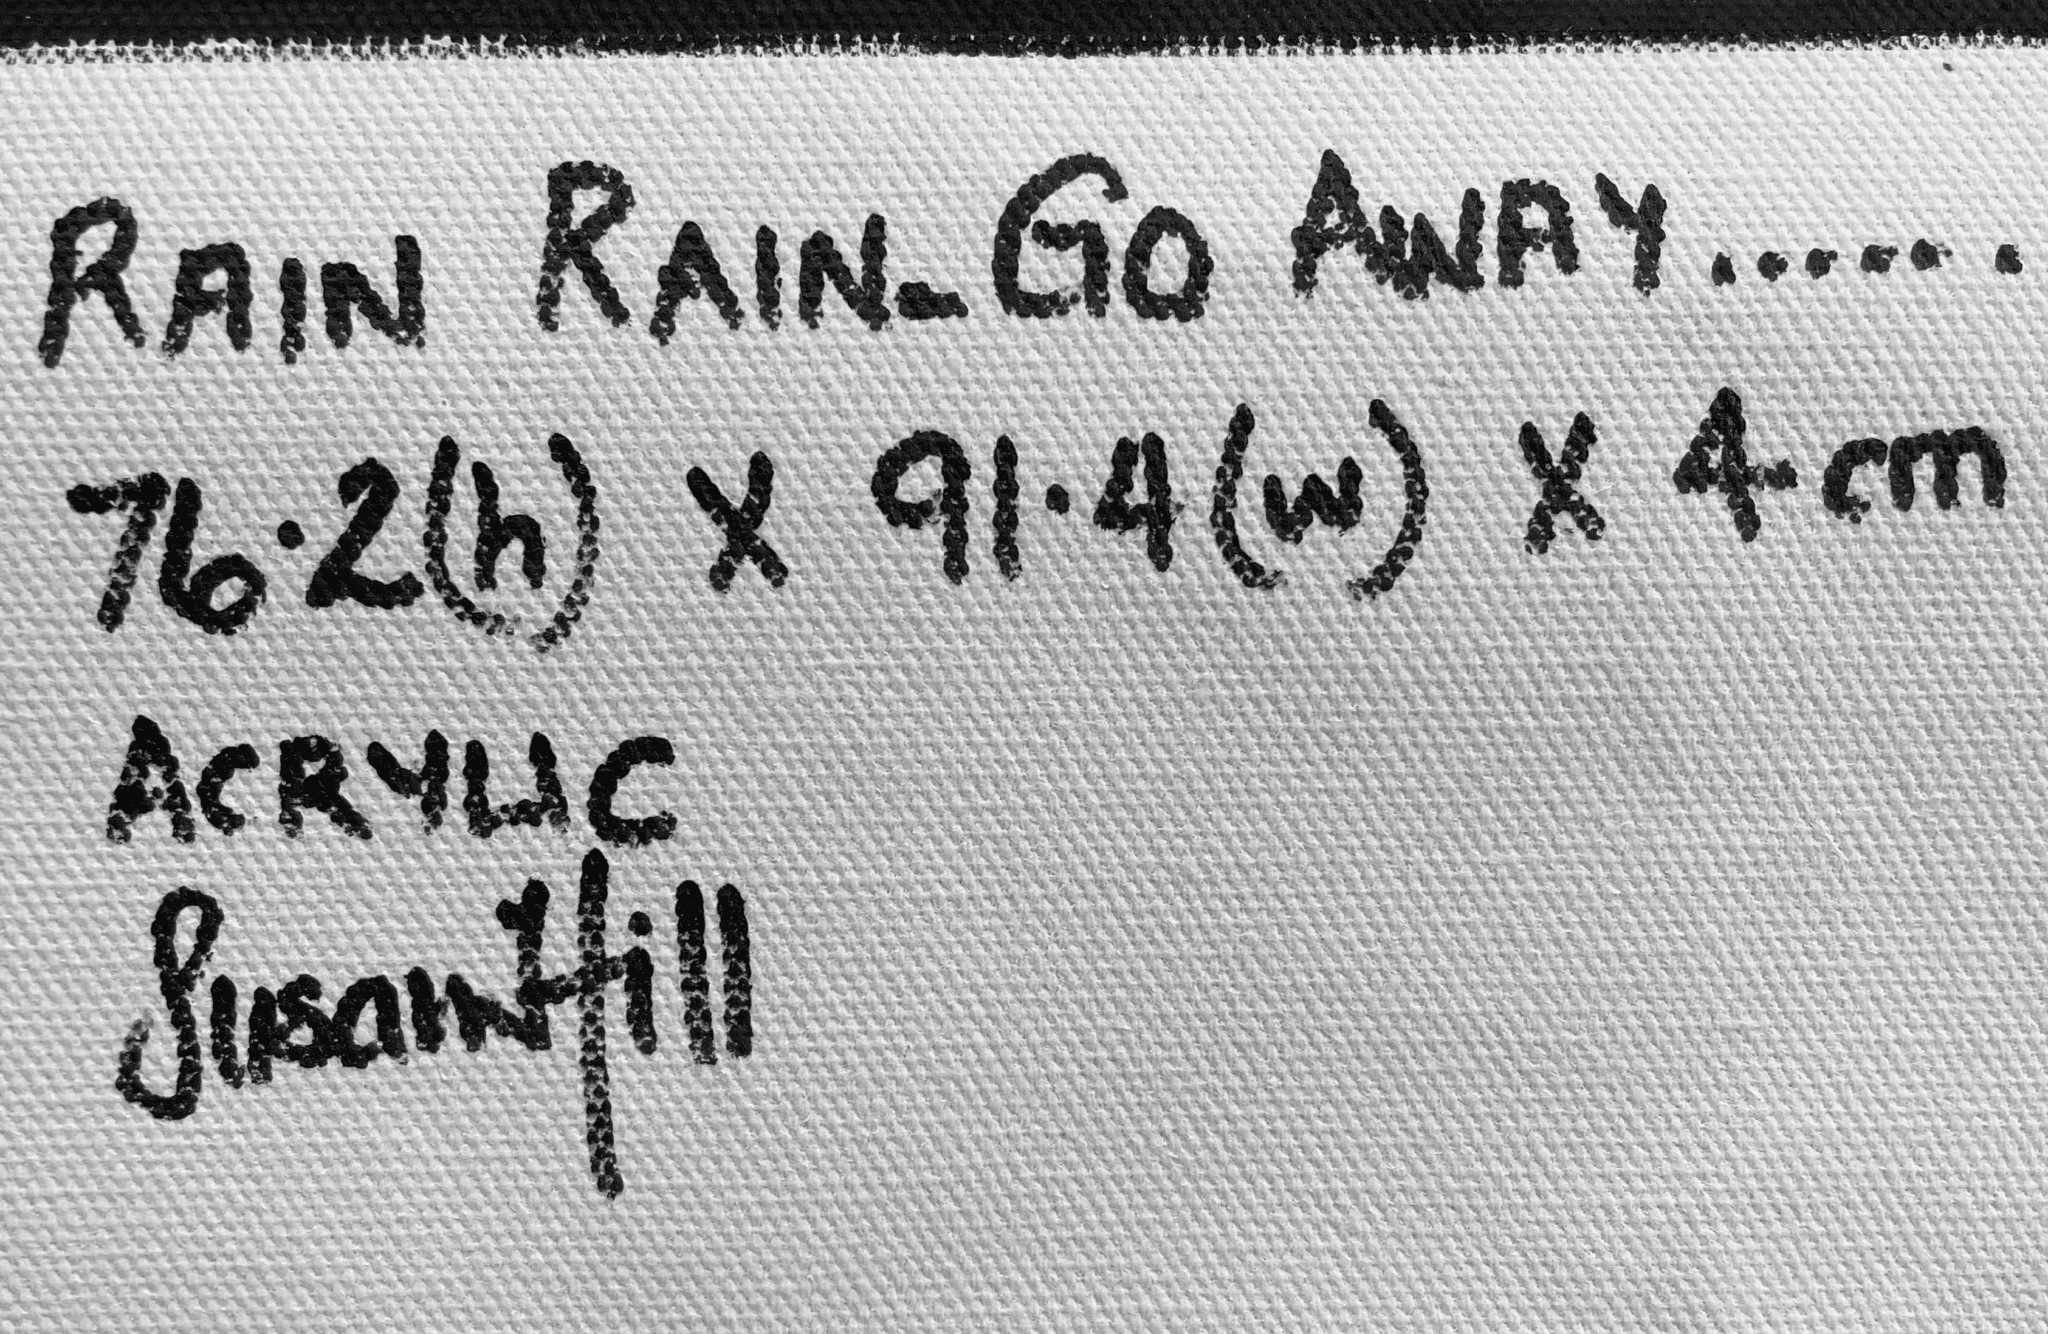 RAIN RAIN-GO AWAY......
76.2(h) x 91.4(w) x 4cm
ACRYLIC
Susan Hill